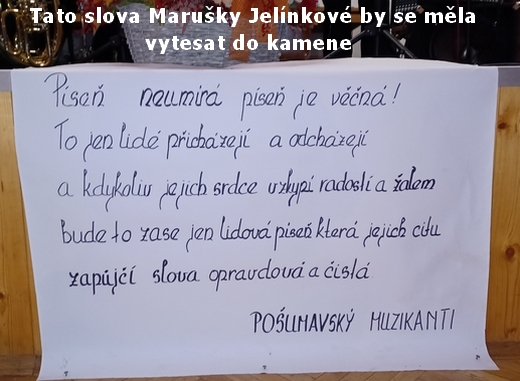 Tato slova Marušky Jelínkové by se měla
vytesat do kamene
Píseň neumírá píseň je věčná!
To jen lidé přicházejí a odcházejí
a kdykoliv jejich srdce vzkypí radostí a žalem
bude to zase jen lidová píseň která jejich citu
zapůjčí slova opravdová a čistá
POŠUMAVSKÝ MUZIKANTI